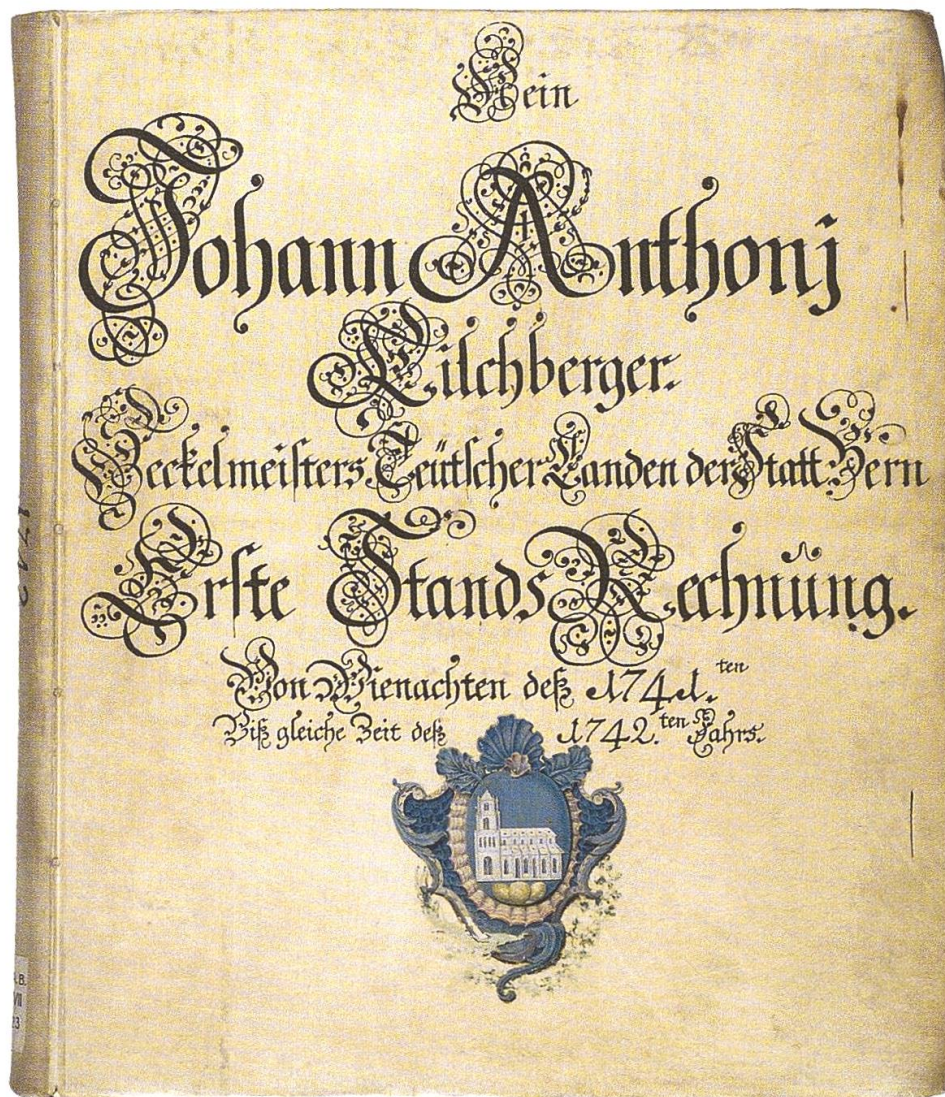 Mein
Johann Anthonj
Kilchberger.
Seckelmeisters Teütscher Landen der Statt Bern
Erste Stands Rechnüng.
Von Wienachten deß 1741.ten
Biß gleiche Zeit deß 1742.ten Jahrs.
1742